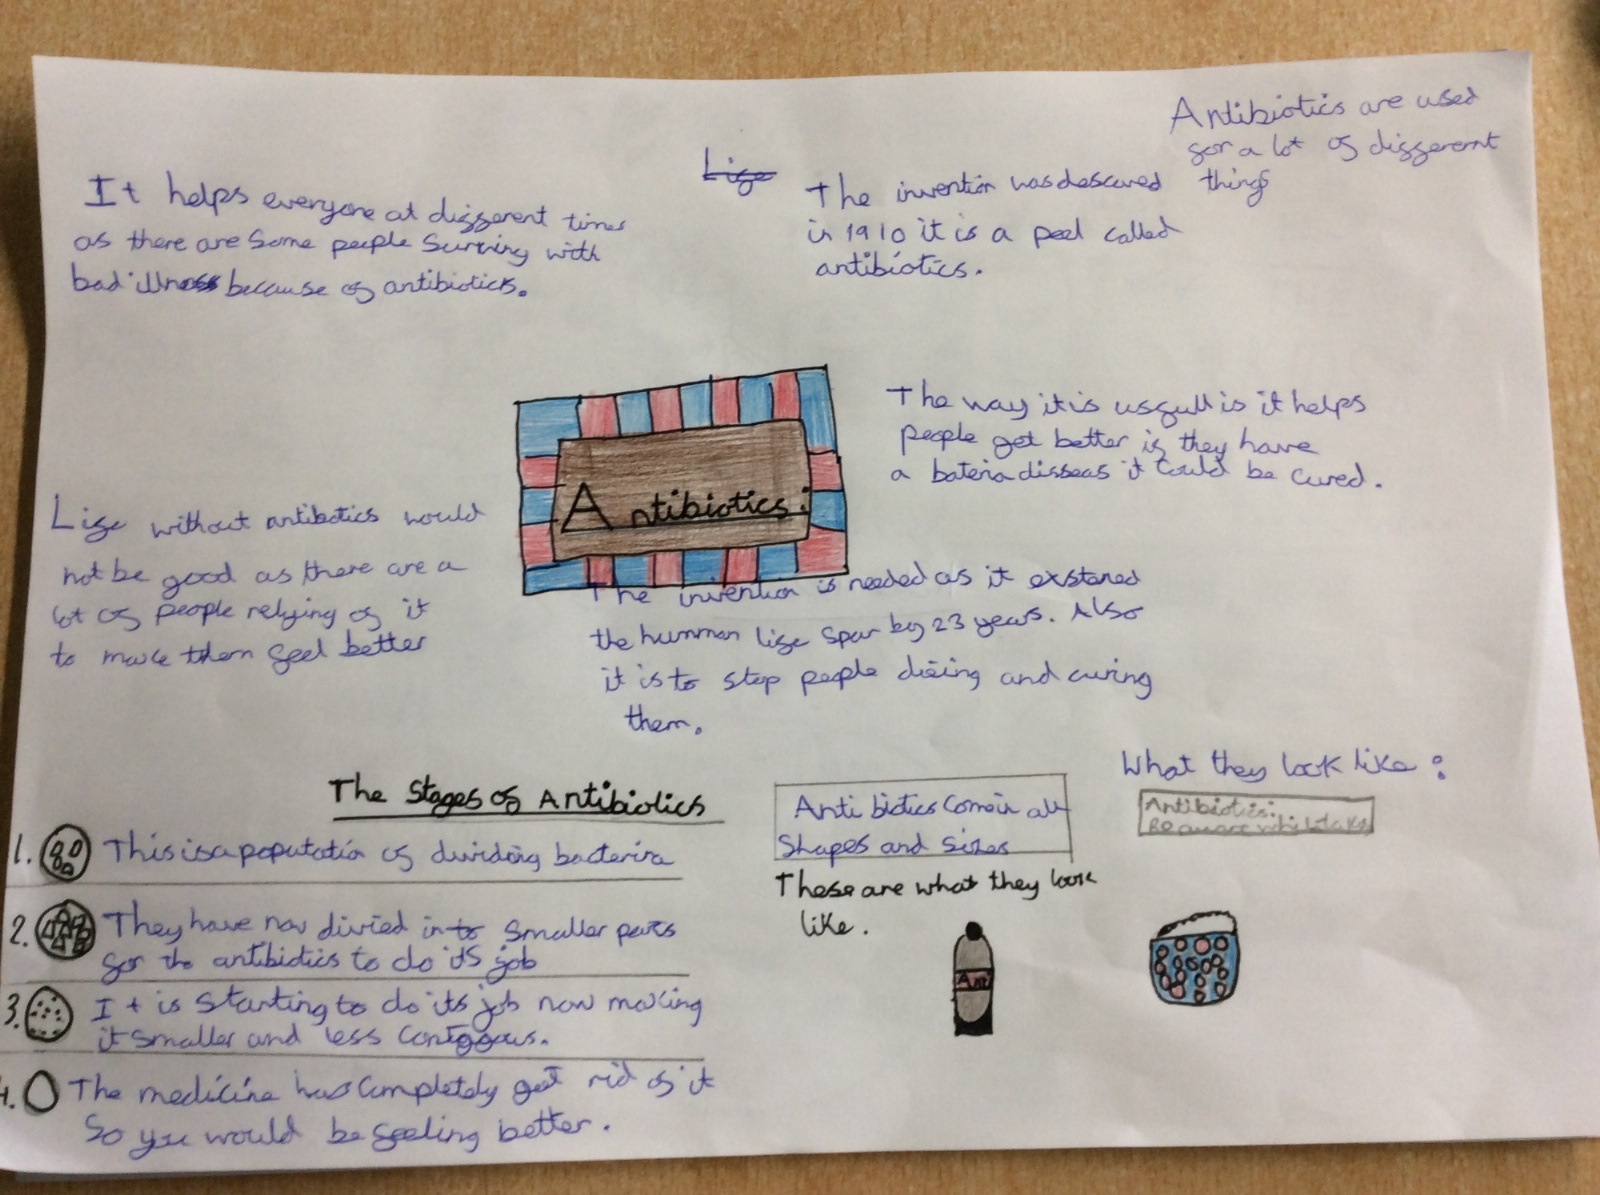 Antibiotics are used
for a lot of differernt
things
Life
The invention was descured
in 1910 it is a peel called
antibiotics.
It helps everyone at different times
as there are some people Surviving with
bad illness because of antibioticts.
Antibiotics:
The way it is usfull is it helps
people get better if they have
a bateria disseas it could be cured.
Life without antibotics would
not be good as there are a
lot of people relying of it
to make them feel better
The invention is needed as it exstaned
the humman life span by 23 years. Also
it is to stop people dieing and curing
them.
The Stages of Antibiotics
1. This is a population of dividing bacterira
2. They have now divied into Smaller parts
for the antibiotics to do it's job
3. It is Starting to do its job now making
it smaller and less contoggous.
4. The medicine has completely got rid of it
So you would be feeling better.
Anti biotics come in all
Shapes and Sizes
These are what they look
like.
Ant
What they look like:
Antibiotics: